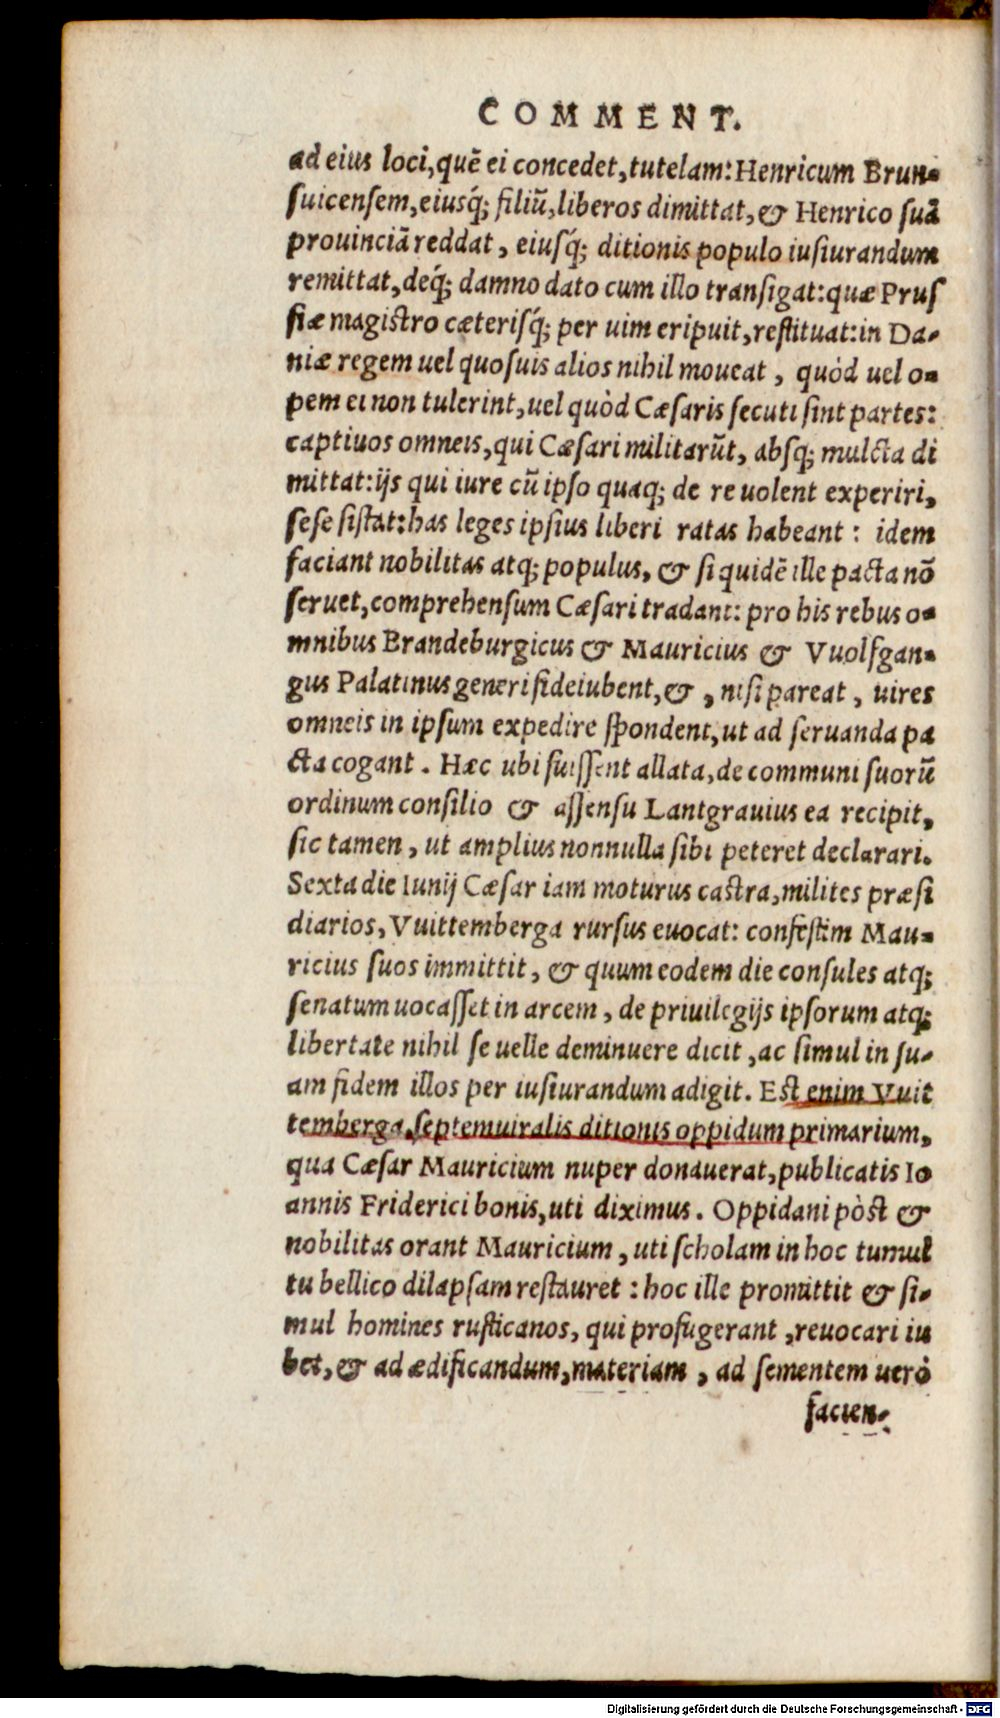 COMMENT.
ad eius loci, quẽ ei concedet, tutelam: Henricum Brun-
suicensem, eiusq́; filiũ, liberos dimittat, & Henrico suã
prouinciã reddat, eiusq́; ditionis populo iusiurandum
remittat, deq́; damno dato cum illo transigat: quæ Prus
siæ magistro cæterisq́; per uim eripuit, restituat: in Da-
niæ regem uel quosuis alios nihil moueat, quòd uel o-
pem ei non tulerint, uel quòd Cæsaris secuti sint partes:
captiuos omneis, qui Cæsari militarũt, absq; mulcta di
mittat: ijs qui iure cũ ipso quaq; de re uolent experiri,
sese sistat: has leges ipsius liberi ratas habeant: idem
faciant nobilitas atq; populus, & siquidẽ ille pacta nõ
seruet, comprehensum Cæsari tradant: pro his rebus o-
mnibus Brandeburgicus & Mauricius & Vuolfgan-
gus Palatinus generi fideiubent, &, nisi pareat, uires
omneis in ipsum expedire spondent, ut ad seruanda pa
cta cogant. Hæc ubi fuissent allata, de communi suorũ
ordinum consilio & assensu Lantgrauius ea recipit,
sic tamen, ut amplius nonnulla sibi peteret declarari.
Sexta die Iunij Cæsar iam moturus castra, milites præsi
diarios, Vuittemberga rursus euocat: confestim Mau-
ricius suos immittit, & quum eodem die consules atq;
senatum uocasset in arcem, de priuilegijs ipsorum atq;
libertate nihil se uelle deminuere dicit, ac simul in su-
am fidem illos per iusiurandum adigit. Est enim Vuit
temberga, septemuiralis ditionis oppidum primarium,
qua Cæsar Mauricium nuper donauerat, publicatis Io
annis Friderici bonis, uti diximus. Oppidani pòst &
nobilitas orant Mauricium, uti scholam in hoc tumul
tu bellico dilapsam restauret: hoc ille promittit & si-
mul homines rusticanos, qui profugerant, reuocari iu
bet, & ad ædificandum, materiam, ad sementem uerò
facien-
Digitalisierung gefördert durch die Deutsche Forschungsgemeinschaft - DFG